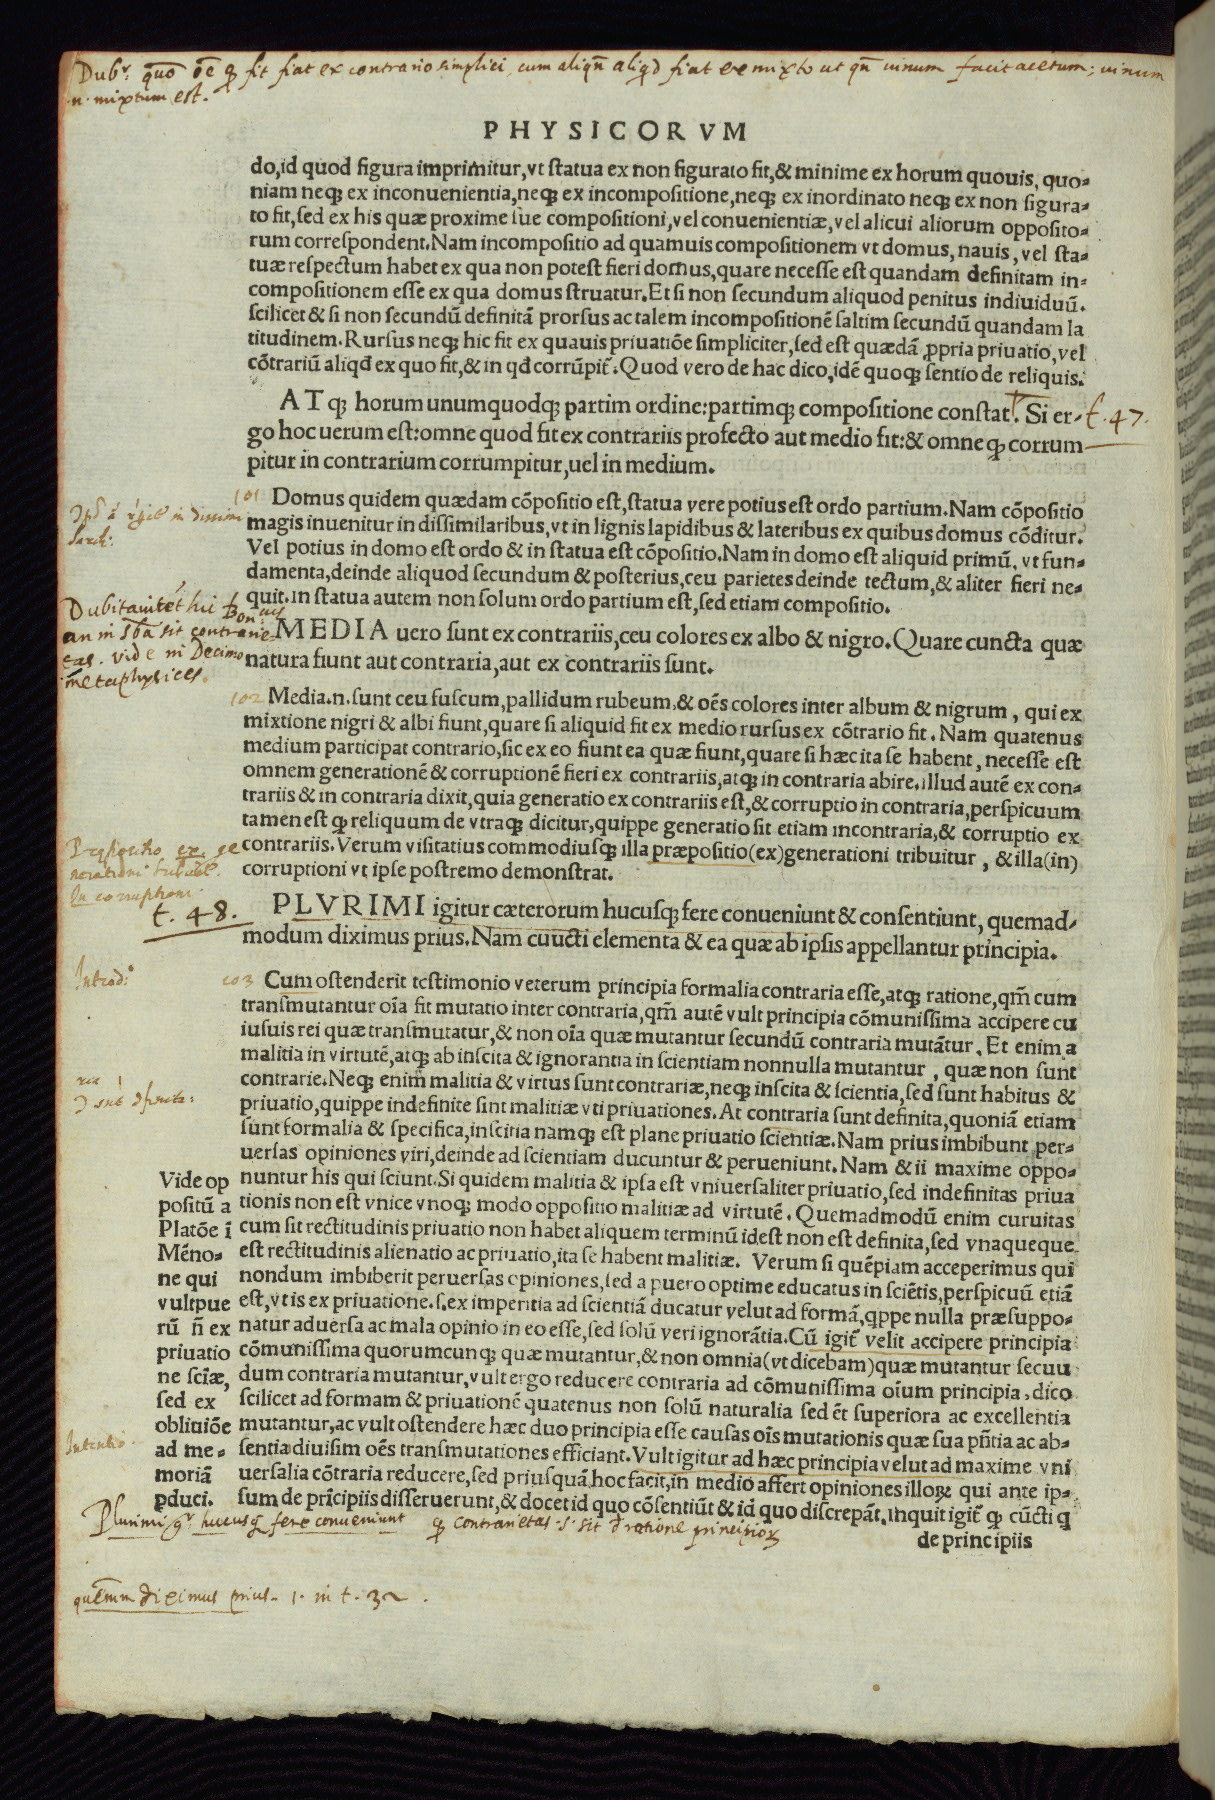 Dubr. quo oē ꝙ fit fiat ex contrario simplici, cum aliqñ aliqd fiat ex mixto ut qñ uinum facit acetum; uinum
.n. mixtum est.
PHYSICORVM
do,id quod figura imprimitur,vt statua ex non figurato fit,& minime ex horum quouis, quo-
niam neqꝫ ex inconuenientia,neqꝫ ex incompositione,neqꝫ ex inordinato neqꝫ ex non figura-
to fit,sed ex his quæ proxime sue compositioni,vel conuenientiæ,vel alicui aliorum opposito-
rum correspondent.Nam incompositio ad quamuis compositionem vt domus, nauis, vel sta-
tuæ respectum habet ex qua non potest fieri domus,quare necesse est quandam definitam in-
compositionem esse ex qua domus struatur.Et si non secundum aliquod penitus indiuiduū.
scilicet & si non secundū definitā prorsus ac talem incompositionē saltim secundū quandam la
titudinem.Rursus neqꝫ hic fit ex quauis priuatiōe simpliciter,sed est quædā ꝓpria priuatio,vel
cōtrariū aliqđ ex quo fit,& in qđ corrūpit̄.Quod vero de hac dico,idē quoqꝫ sentio de reliquis.
ATqꝫ horum unumquodqꝫ partim ordine:partimqꝫ compositione constat. Si er-
t. 47.
go hoc uerum est:omne quod fit ex contrariis profecto aut medio fit:& omne ꝙ corrum
pitur in contrarium corrumpitur,uel in medium.
101 Domus quidem quædam cōpositio est,statua vere potius est ordo partium.Nam cōpositio
magis inuenitur in dissimilaribus,vt in lignis lapidibus & lateribus ex quibus domus cōditur.
Vel potius in domo est ordo & in statua est cōpositio.Nam in domo est aliquid primū, vt fun-
damenta,deinde aliquod secundum & posterius,ceu parietes deinde tectum,& aliter fieri ne-
quit.in statua autem non solum ordo partium est,sed etiam compositio.
Dubitauit et hic Bonus
an in sba sit contrarie-
tas. vide in Decimo
metaphysices.
MEDIA uero sunt ex contrariis,ceu colores ex albo & nigro.Quare cuncta quæ
natura fiunt aut contraria,aut ex contrariis sunt.
102 Media.n.sunt ceu fuscum,pallidum rubeum,& oēs colores inter album & nigrum, qui ex
mixtione nigri & albi fiunt,quare si aliquid fit ex medio rursus ex cōtrario fit. Nam quatenus
medium participat contrario,sic ex eo fiunt ea quæ fiunt,quare si hæc ita se habent, necesse est
omnem generationē & corruptionē fieri ex contrariis,atqꝫ in contraria abire.illud autē ex con-
trariis & in contraria dixit,quia generatio ex contrariis est,& corruptio in contraria,perspicuum
tamen est ꝙ reliquum de vtraqꝫ dicitur,quippe generatio sit etiam incontraria,& corruptio ex
contrariis.Verum visitatius commodiusqꝫ illa præpositio(ex)generationi tribuitur, & illa(in)
corruptioni vt ipse postremo demonstrat.
Præpositio ex ge
nerationi
In corruptioni
t. 48.
PLVRIMI igitur cæterorum hucusqꝫ fere conueniunt & consentiunt, quemad-
modum diximus prius.Nam cuucti elementa & ea quæ ab ipsis appellantur principia.
Introd:
103 Cum ostenderit testimonio veterum principia formalia contraria esse,atqꝫ ratione,qm̄ cum
transmutantur oīa fit mutatio inter contraria,qm̄ autē vult principia cōmunissima accipere cu
iusuis rei quæ transmutatur,& non oīa quæ mutantur secundū contraria mutātur. Et enim a
malitia in virtutē,atqꝫ ab inscita & ignorantia in scientiam nonnulla mutantur, quæ non sunt
contrarie.Neqꝫ enim malitia & virtus sunt contrariæ,neqꝫ inscita & scientia,sed sunt habitus &
priuatio,quippe indefinite sint malitiæ vti priuationes.At contraria sunt definita,quoniā etiam
sunt formalia & specifica,inscitia namqꝫ est plane priuatio scientiæ.Nam prius imbibunt per-
uersas opiniones viri,deinde ad scientiam ducuntur & perueniunt.Nam & ii maxime oppo-
nuntur his qui sciunt.Si quidem malitia & ipsa est vniuersaliter priuatio,sed indefinitas priua
tionis non est vnice vnoqꝫ modo oppositio malitiæ ad virtutē. Quemadmodū enim curuitas
cum sit rectitudinis priuatio non habet aliquem terminū idest non est definita,sed vnaqueque
est rectitudinis alienatio ac priuatio,ita se habent malitiæ. Verum si quēpiam acceperimus qui
nondum imbiberit peruersas opiniones,sed a puero optime educatus in sciētis,perspicuū etiā
est,vt is ex priuatione.s.ex imperitia ad scientiā ducatur velut ad formā,qppe nulla præsuppo-
natur aduersa ac mala opinio in eo esse,sed solū veri ignorātia.Cū igit̄ velit accipere principia
cōmunissima quorumcunqꝫ quæ mutantur,& non omnia(vt dicebam)quæ mutantur secuu
dum contraria mutantur,vult ergo reducere contraria ad cōmunissima oīum principia, dico
scilicet ad formam & priuationē quatenus non solū naturalia sed ēt superiora ac excellentia
mutantur,ac vult ostendere hæc duo principia esse causas oīs mutationis quæ sua pñtia ac ab-
sentia diuisim oēs transmutationes efficiant.Vult igitur ad hæc principia velut ad maxime vni
uersalia cōtraria reducere,sed priusquā hoc facit,in medio affert opiniones illoꝝ qui ante ip-
sum de prīcipiis disseruerunt,& docet id quo cōsentiūt & id quo discrepāt.inquit igit̄ ꝙ cūcti q
de principiis
Vide op
positū a
Platōe ī
Mēno-
ne qui
vult pue
rū ñ ex
priuatio
ne sciæ,
sed ex
obliuiōe
ad me-
moriā
ꝓduci.
Intentio.
Plurimi gr hucusqꝫ fere conueniunt ꝙ contrarietas .s. sit đ ratione principioꝝ
quemm diximus prius. 1. in t. 32.